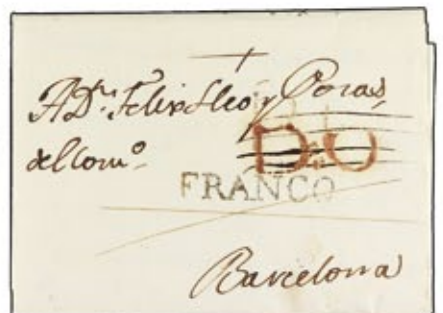 A Dn. Felix Lleo y Poras,
del Como.
D.O
FRANCO
Barcelona